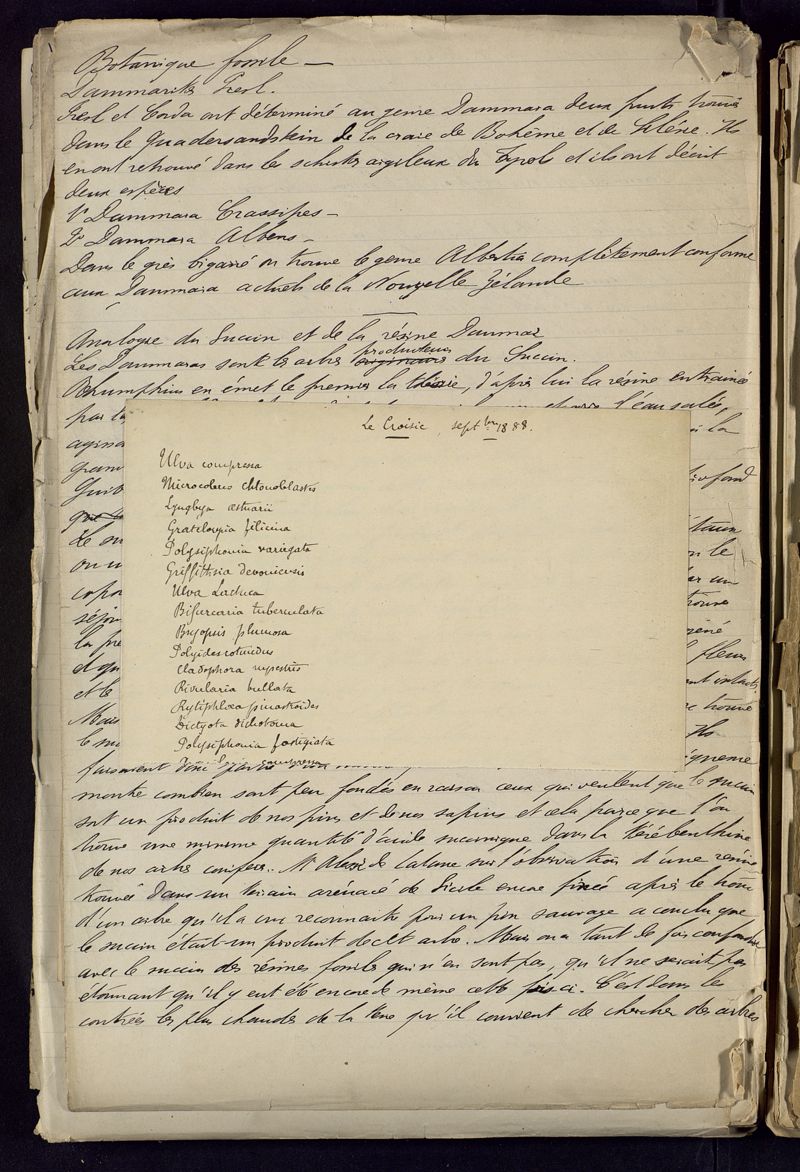 Botanique fossile —
Dammarites Presl.
Presl et Corda ont déterminé au genre Dammara deux fruits trouvés
dans le Quadersandstein de la craie de Bohême et de Silésie. Ils
en ont retrouvé dans le schiste argileux du Tyrol et ils ont décrit
deux espèces
1º Dammara Crassipes —
2º Dammara Albens —
Dans le grès bigarré on trouve le genre Albertia complètement conforme
aux Dammara actuels de la Nouvelle Zélande
Analogie du Succin et de la résine Dammar
Les Dammaras sont les arbres producteurs du Succin.
Rhumphius en émet le premier la théorie, d'après lui la résine entrainée
par l'eau salée,
Le Croisic, septbre 1888.
Ulva compressa
Microcoleus chtonoblastes
Lyngbya æstuarii
Grateloupia filicina
Polysiphonia variegata
Griffithsia devoniensis
Ulva Lactuca
Bifurcaria tuberculata
Bryopsis plumosa
Polyides rotundus
Cladophora rupestris
Rivularia bullata
Rytiphlœa pinastroides
Dictyota dichotoma
Polysiphonia fastigiata
montre combien sont peu fondés en raison ceux qui veulent que le succin
soit un produit de nos pins et de nos sapins et cela parce que l'on
trouve une minime quantité d'acide succinique dans la térébenthine
de nos arbres conifères. Mr de Catane sur l'observation d'une résine
trouvée dans un terrain arénacé de Sicile encore fixée après le tronc
d'un arbre qu'il a cru reconnaitre pour un pin sauvage a conclu que
le succin était un produit de cet arbre. Mais on a tant de fois confondu
avec le succin des résines fossiles qui n'en sont pas, qu'il ne serait pas
étonnant qu'il y eut été encore de même cette fois ci. C'est dans les
contrées les plus chaudes de la terre qu'il convient de chercher des arbres